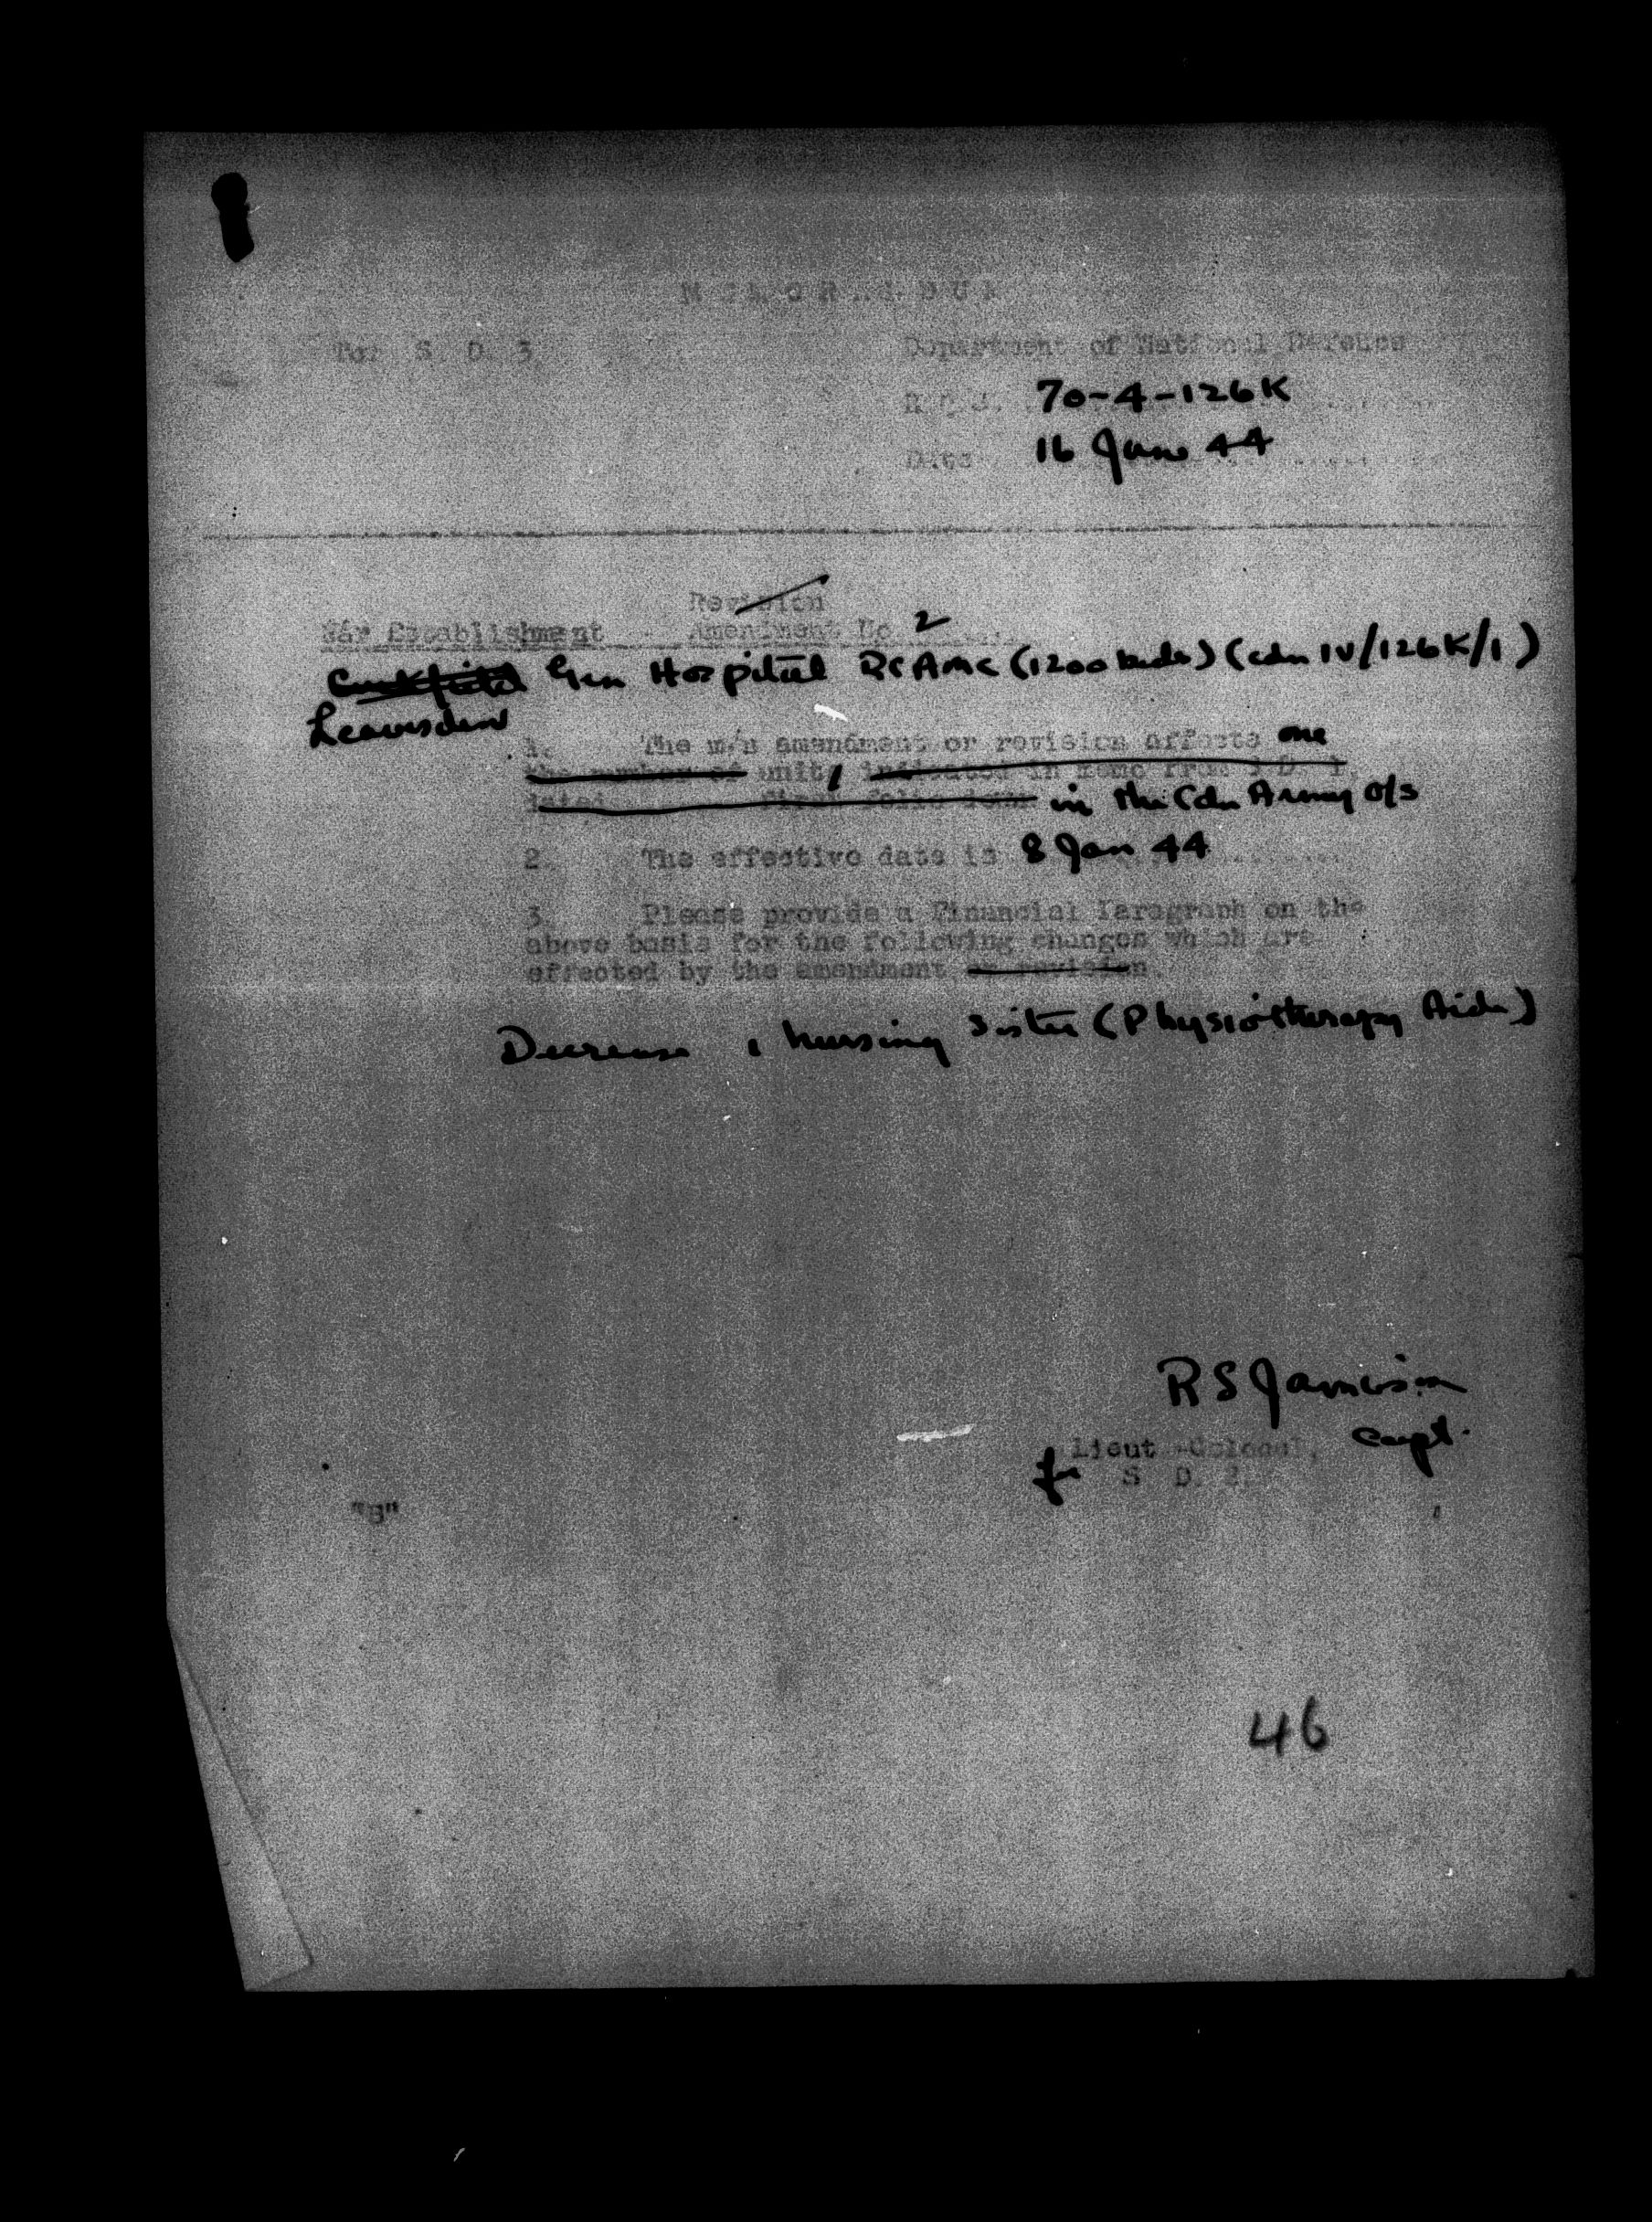 M E M O R A N D U M
To: S. D. 3
Department of National Defence
H.Q.S. 70-4-126K
Date 16 June 44
Revision
War Establishment - Amendment No. 2
Cuckfield Gen Hospital RCAMC (1200 beds) (Cdn IV/126K/1)
Leavesden
1. The m/n amendment or revision affects one
the number of unit, indicated in memo from S.D. 1,
dated in the Cdn Army O/S
2. The effective date is 8 Jan 44
3. Please provide a Financial Paragraph on the
above basis for the following changes which are
effected by the amendment or revision.
Decrease 1 Nursing Sister (Physiotherapy Aide)
R S Jamieson
Capt.
Lieut-Colonel,
for S. D. 2.
"B"
46